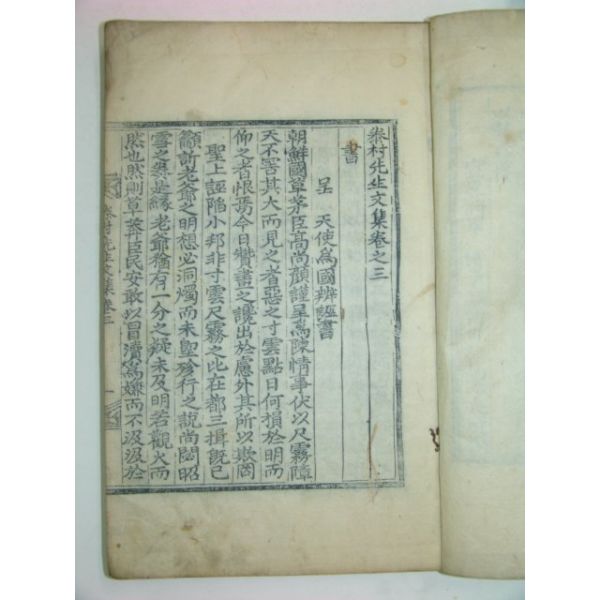 泰村先生文集卷之三
書
呈 天使爲國辨誣書
朝鮮國草茅臣高尚顔謹呈爲陳情事伏以尺霧障
天不害其大而見之者惡之寸雲點日何損於明而
仰之者恨焉今日贊畫之讒出於慮外其所以欺罔
聖上誣陷小邦非寸雲尺霧之比在都三揖旣已
籲訢老爺之明想必洞燭而未聖殄行之說尚闕昭
雪之典是緣老爺猶有一分之疑未及明若觀火而
然也然則草莽臣民安敢以冒瀆爲嫌而不汲汲於
泰村先生文集卷三
一